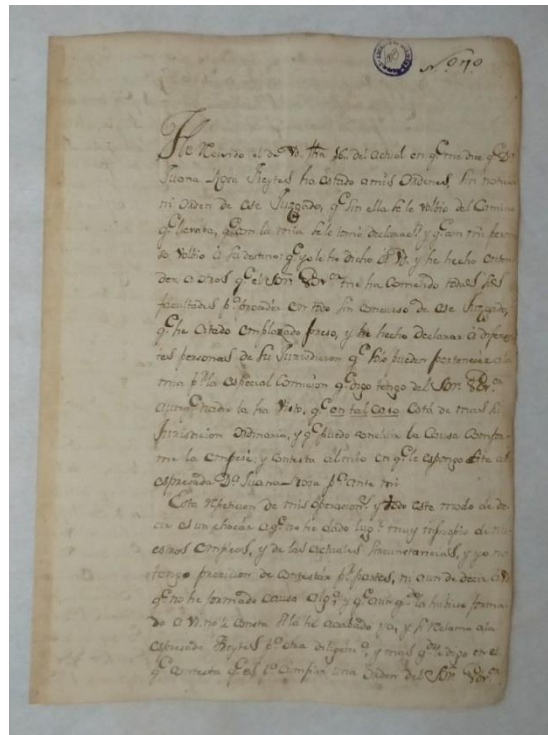 N.º 170
He Recivido el de Vd. fha 16. del actual en q.e me dice q.e D.a
Juana Rosa Reytes ha estado a mis Ordenes, sin noticia
ni Orden de ese Juzgado, q.e sin ella se le volbio del Camino
q.e llevaba, q.e con la mia se le tomó declarac.n y q.e con mi permiso
se volbio à su destino: q.e yo le he dicho à Vd. y he hecho enten
der a otros q.e el Son. Gov.or me ha conferido todas sus
facultades p.a proceder en todo sin concurso de ese Juzgado,
q.e he citado emplazado preso, y he hecho Declarar à diferen
tes personas de su Jurisdiccion q.e solo pueden pertenecer a la
mia p.r la especial Comicion q.e digo tengo del Son. Gov.or
aunq.e nadie la ha visto, q.e en tal caso está de mas su
Jurisdicion Ordinaria, y q.e puedo concluir la Causa Confor
me la empesé; y contesta al mio en q.e le expongo cite a la
espresada D.a Juana Rosa p.a ante mi
Esta repeticion de mis operacion.s y todo este modo de de
cir es un chocar a q.e no he dado lug.r muy impropio de nu
estros empleos, y de las actuales circunstancias, y yo no
tengo precicion de contestár p.r partes, ni aun de decir a Vd.
q.e no he formado causa alg.a y q.e aun q.e la hubiese forma
do a Vd. no le consta si la he acabado ya, y si reclamo a la
espresada Reytes p.a otra diligenc.a, y mas q.do le digo en el
q.e contesta q.e es p.a cumplir una Orden del Son. Gov.or